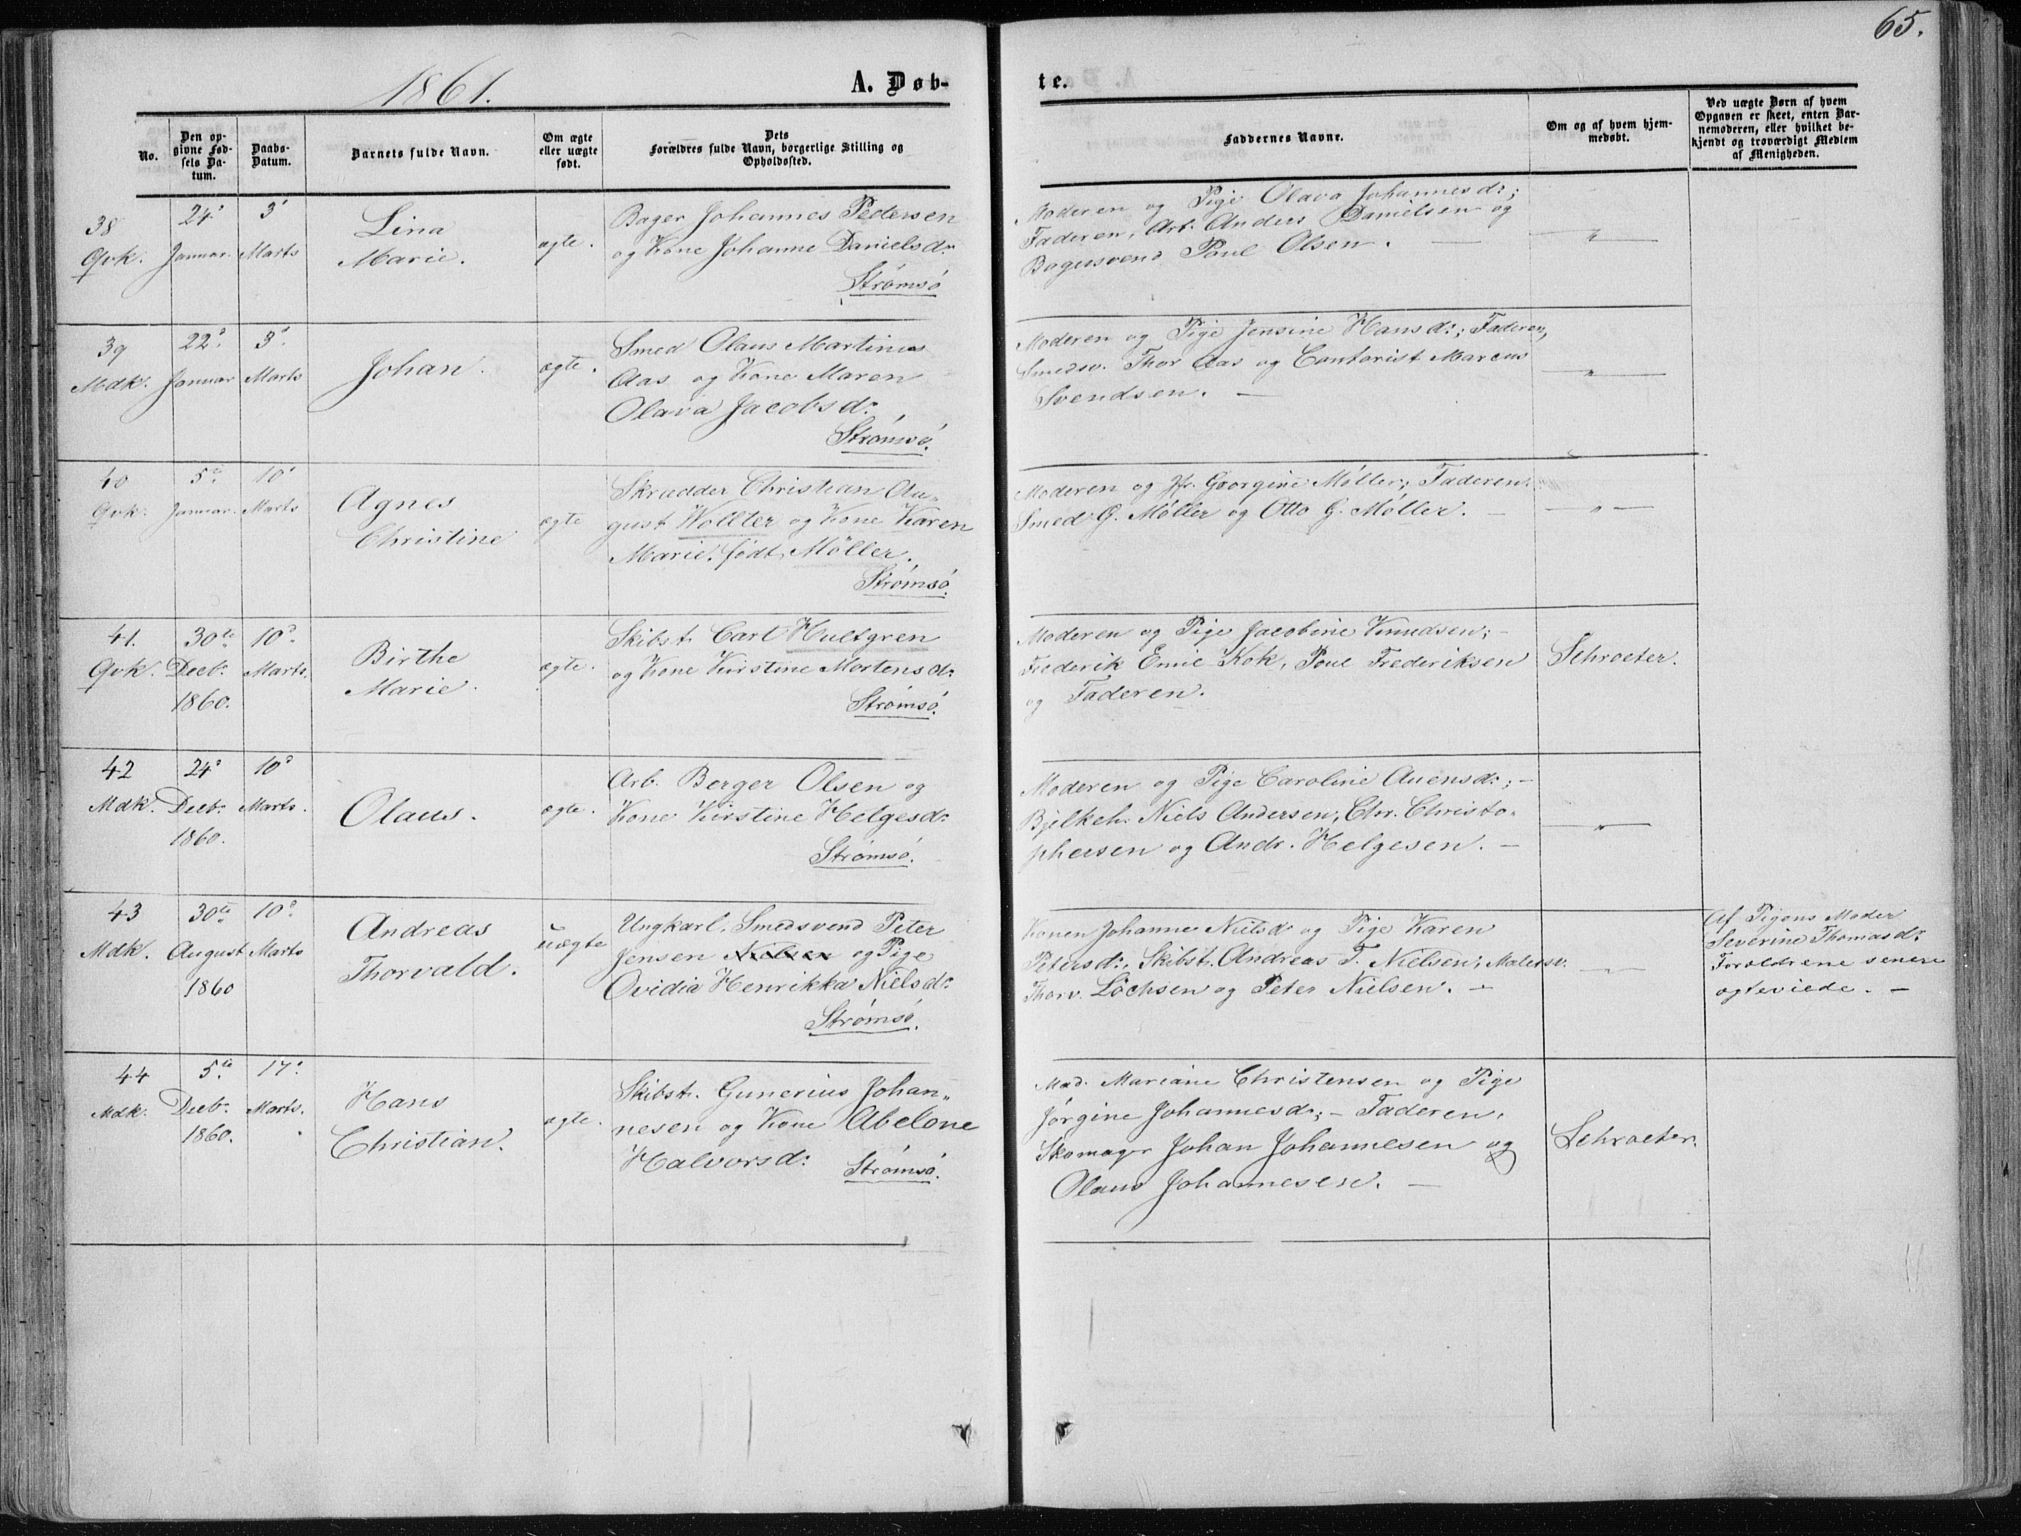 65.
1861.
A. Døb-
te.
No.
Den op-
givne Fød-
sels Da-
tum.
Daabs-
Datum.
Barnets fulde Navn.
Om ægte
eller uægte
født.
Dets
Forældres fulde Navn, borgerlige Stilling og
Opholdssted.
Faddernes Navne.
Om og af hvem hjem-
medøbt.
Ved uægte Børn af hvem
Opgaven er skeet, enten Bar-
nemoderen, eller hvilket be-
kjendt og troværdigt Medlem
af Menigheden.
38
Qvk.
24'
Januar.
3'
Marts
Lina
Marie.
ægte.
Bager Johannes Pedersen
og Kone Johanne Danielsdr.
Strømsø
Moderen og Pige Olava Johannesdr;
Faderen, Arb. Anders Danielsen og
Bagersvend Poul Olsen. —
— " —
39
Mdk.
22.
Januar
3'
Marts
Johan.
ægte.
Smed Olaus Martinus
Aas og Kone Maren
Olava Jacobsdr.
Strømsø.
Moderen og Pige Jensine Hansdr; Faderen,
Smedsv. Thor Aas og Contorist Marcus
Svendsen. —
— " —
40
Qvk.
5te
Januar.
10'
Marts
Agnes
Christine
ægte
Skrædder Christian Au„
gust Wollter og Kone Karen
Marie. født. Møller.
Strømsø.
Moderen og Jfr. Georgine Møller; Faderen.
Smed G. Møller og Otto G. Møller. —
— " —
41.
Qvk.
30te
Decbr.
1860.
10.
Marts.
Birthe
Marie.
ægte.
Skibst. Carl Hultgren
og Kone Kirstine Mortensdr.
Strømsø.
Moderen og Pige Jacobine Knudsen; —
Frederik Emil Kok, Poul Frederiksen
og Faderen.
Schroeter.
42
Mdk.
24.
Decbr.
1860.
10.
Marts.
Olaus.
ægte.
Arb. Berger Olsen og
Kone Kirstine Helgesdr.
Strømsø.
Moderen og Pige Caroline Auensdr; —
Bjelkeh. Niels Andersen, Chr. Christo„
phersen og Andr. Helgesen. —
— " —
43
Mdk.
30te
August
1860
10.
Marts
Andreas
Thorvald.
uægte
Ungkarl, Smedsvend Peter
Jensen Nielsen og Pige
Ovidia Henrikka Nielsdr.
Strømsø.
Konen Johanne Nielsdr og Pige Karen
Petersdr, Skibst. Andreas T. Nielsen, Malersv.
Thorv. Lochsen og Peter Nielsen. —
— " —
Af Pigens Moder
Severine Thomasdr.
Forældrene senere
ægteviede. —
44
Mdk.
5te
Decbr.
1860.
17.
Marts.
Hans
Christian.
ægte.
Skibst. Gunerius Johan„
nesen og Kone Abelone
Halvorsdr.
Strømsø.
Mad. Mariane Christensen og Pige
Jørgine Johannesdr; — Faderen,
Skomager Johan Johannesen og
Olaus Johannesen. —
Schroeter.